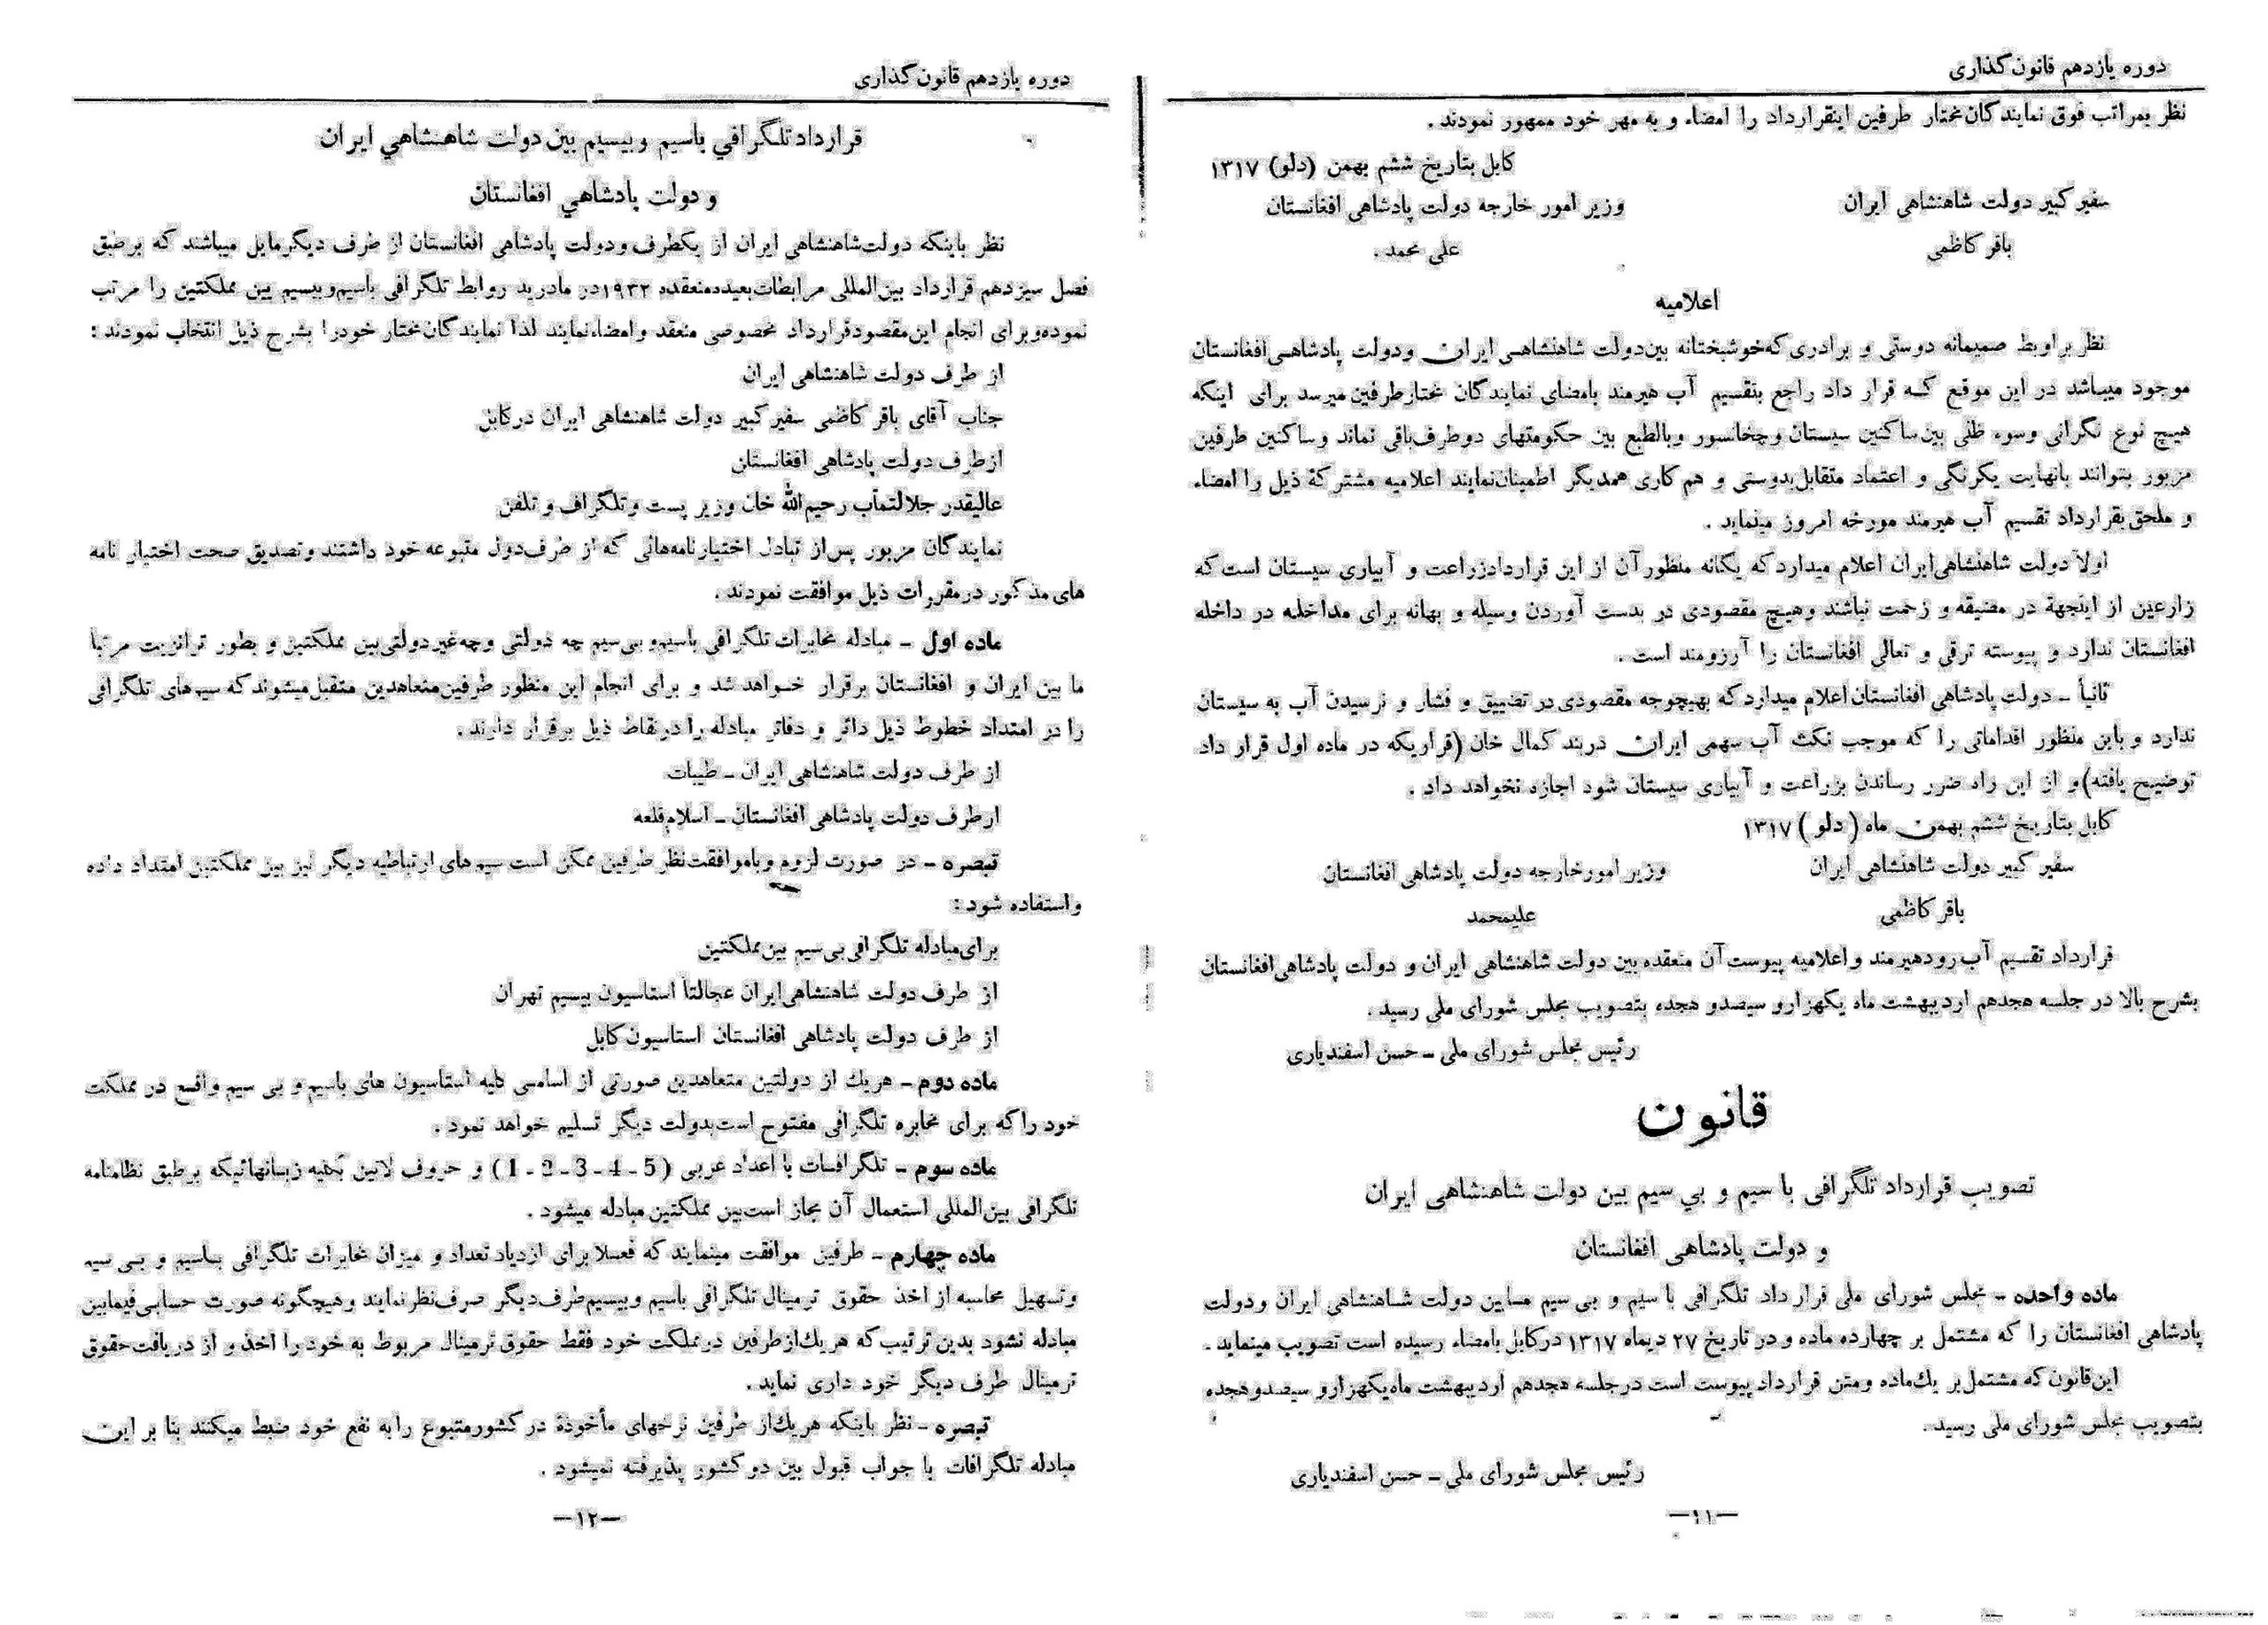 دوره یازدهم قانون‌گذاری
نظر بمراتب فوق نمایندگان مختار طرفین اینقرارداد را امضاء و به مهر خود ممهور نمودند .
کابل بتاریخ ششم بهمن (دلو) ۱۳۱۷
سفیر کبیر دولت شاهنشاهی ایران
وزیر امور خارجه دولت پادشاهی افغانستان
باقر کاظمی
علی محمد .
اعلامیه
نظر براوبط صمیمانه دوستی و برادری که خوشبختانه بین دولت شاهنشاهی ایران و دولت پادشاهی افغانستان
موجود میباشد در این موقع که قرار داد راجع بتقسیم آب هیرمند بامضای نمایندگان مختار طرفین میرسد برای اینکه
هیچ نوع نگرانی وسوء ظنی بین ساکنین سیستان و چخانسور وبالطبع بین حکومتهای دوطرف باقی نماند وساکنین طرفین
مزبور بتوانند بانهایت یکرنگی و اعتماد متقابل بدوستی و هم کاری همدیگر اطمینان نمایند اعلامیه مشترکهٔ ذیل را امضاء
و ملحق بقرارداد تقسیم آب هیرمند مورخه امروز مینماید .
اولا دولت شاهنشاهی ایران اعلام میدارد که یگانه منظور آن از این قرارداد زراعت و آبیاری سیستان است که
زارعین از اینجهة در مضیقه و زحمت نباشند وهیچ مقصودی در بدست آوردن وسیله و بهانه برای مداخله در داخله
افغانستان ندارد و پیوسته ترقی و تعالی افغانستان را آرزومند است .
ثانیاً ـ دولت پادشاهی افغانستان اعلام میدارد که بهیچوجه مقصودی در تضییق و فشار و نرسیدن آب به سیستان
ندارد و باین منظور اقداماتی را که موجب نکث آب سهمی ایران دربند کمال خان (قراریکه در ماده اول قرار داد
توضیح یافته) و از این راه ضرر رساندن بزراعت و آبیاری سیستان شود اجازه نخواهد داد .
کابل بتاریخ ششم بهمن ماه (دلو) ۱۳۱۷
سفیر کبیر دولت شاهنشاهی ایران
وزیر امورخارجه دولت پادشاهی افغانستان
باقر کاظمی
علیمحمد
قرارداد تقسیم آب رودهیرمند و اعلامیه پیوست آن منعقده بین دولت شاهنشاهی ایران و دولت پادشاهی افغانستان
بشرح بالا در جلسه هجدهم اردیبهشت ماه یکهزارو سیصدو هجده بتصویب مجلس شورای ملی رسید .
رئیس مجلس شورای ملی ـ حسن اسفندیاری
قانون
تصویب قرارداد تلگرافی با سیم و بی سیم بین دولت شاهنشاهی ایران
و دولت پادشاهی افغانستان
ماده واحده ـ مجلس شورای ملی قرار داد تلگرافی با سیم و بی سیم مابین دولت شاهنشاهی ایران ودولت
پادشاهی افغانستان را که مشتمل بر چهارده ماده و در تاریخ ۲۷ دیماه ۱۳۱۷ درکابل بامضاء رسیده است تصویب مینماید .
این قانون که مشتمل بر یك ماده ومتن قرارداد پیوست است درجلسه هجدهم اردیبهشت ماه یکهزارو سیصدو هجده
بتصویب مجلس شورای ملی رسید .
رئیس مجلس شورای ملی ـ حسن اسفندیاری
—۱۱—
دوره یازدهم قانون‌گذاری
قرارداد تلگرافي باسیم وبیسیم بین دولت شاهنشاهي ایران
و دولت پادشاهي افغانستان
نظر باینکه دولت شاهنشاهی ایران از یکطرف ودولت پادشاهی افغانستان از طرف دیگر مایل میباشند که برطبق
فصل سیزدهم قرارداد بین‌المللی مرابطات بعیده منعقده ۱۹۳۲ در مادرید روابط تلگرافی باسیم وبیسیم بین مملکتین را مرتب
نموده وبرای انجام این مقصود قرارداد مخصوصی منعقد وامضاء نمایند لذا نمایندگان مختار خودرا بشرح ذیل انتخاب نمودند :
از طرف دولت شاهنشاهی ایران
جناب آقای باقر کاظمی سفیر کبیر دولت شاهنشاهی ایران درکابل
ازطرف دولت پادشاهی افغانستان
عالیقدر جلالتمآب رحیم‌الله خان وزیر پست وتلگراف و تلفن
نمایندگان مزبور پس از تبادل اختیارنامه‌هائی که از طرف دول متبوعه خود داشتند وتصدیق صحت اختیار نامه
های مذکور درمقررات ذیل موافقت نمودند .
ماده اول ـ مبادله مخابرات تلگرافی باسیم و بی‌سیم چه دولتی و چه غیر دولتی بین مملکتین و بطور ترانزیت مرتباً
ما بین ایران و افغانستان برقرار خواهد شد و برای انجام این منظور طرفین متعاهدین متقبل میشوند که سیم‌های تلگرافی
را در امتداد خطوط ذیل دائر و دفاتر مبادله را درنقاط ذیل برقرار دارند .
از طرف دولت شاهنشاهی ایران ـ طیبات
ازطرف دولت پادشاهی افغانستان ـ اسلام قلعه
تبصره ـ در صورت لزوم و باموافقت نظر طرفین ممکن است سیم‌های ارتباطیه دیگر نیز بین مملکتین امتداد داده
واستفاده شود :
برای مبادله تلگرافی بی‌سیم بین مملکتین
از طرف دولت شاهنشاهی ایران عجالتاً استاسیون بیسیم تهران
از طرف دولت پادشاهی افغانستان استاسیون کابل
ماده دوم ـ هریك از دولتین متعاهدین صورتی از اسامی کلیه استاسیون های باسیم و بی سیم واقع در مملکت
خود را که برای مخابره تلگرافی مفتوح است بدولت دیگر تسلیم خواهد نمود .
ماده سوم ـ تلگرافات با اعداد عربی (1 - 2 - 3 - 4 - 5) و حروف لاتین بکلیه زبانهائیکه برطبق نظامنامه
تلگرافی بین‌المللی استعمال آن مجاز است بین مملکتین مبادله میشود .
ماده چهارم ـ طرفین موافقت مینمایند که فعلا برای ازدیاد تعداد و میزان مخابرات تلگرافی باسیم و بی سیم
وتسهیل محاسبه از اخذ حقوق ترمینال تلگرافی باسیم وبیسیم طرف دیگر صرف‌نظر نمایند وهیچگونه صورت حسابی فیمابین
مبادله نشود بدین ترتیب که هریك ازطرفین در مملکت خود فقط حقوق ترمینال مربوط به خود را اخذ و از دریافت حقوق
ترمینال طرف دیگر خود داری نماید .
تبصره ـ نظر باینکه هریك از طرفین نرخهای مأخوذهٔ در کشورمتبوع را به نفع خود ضبط میکنند بنا بر این
مبادله تلگرافات با جواب قبول بین دو کشور پذیرفته نمیشود .
—۱۲—